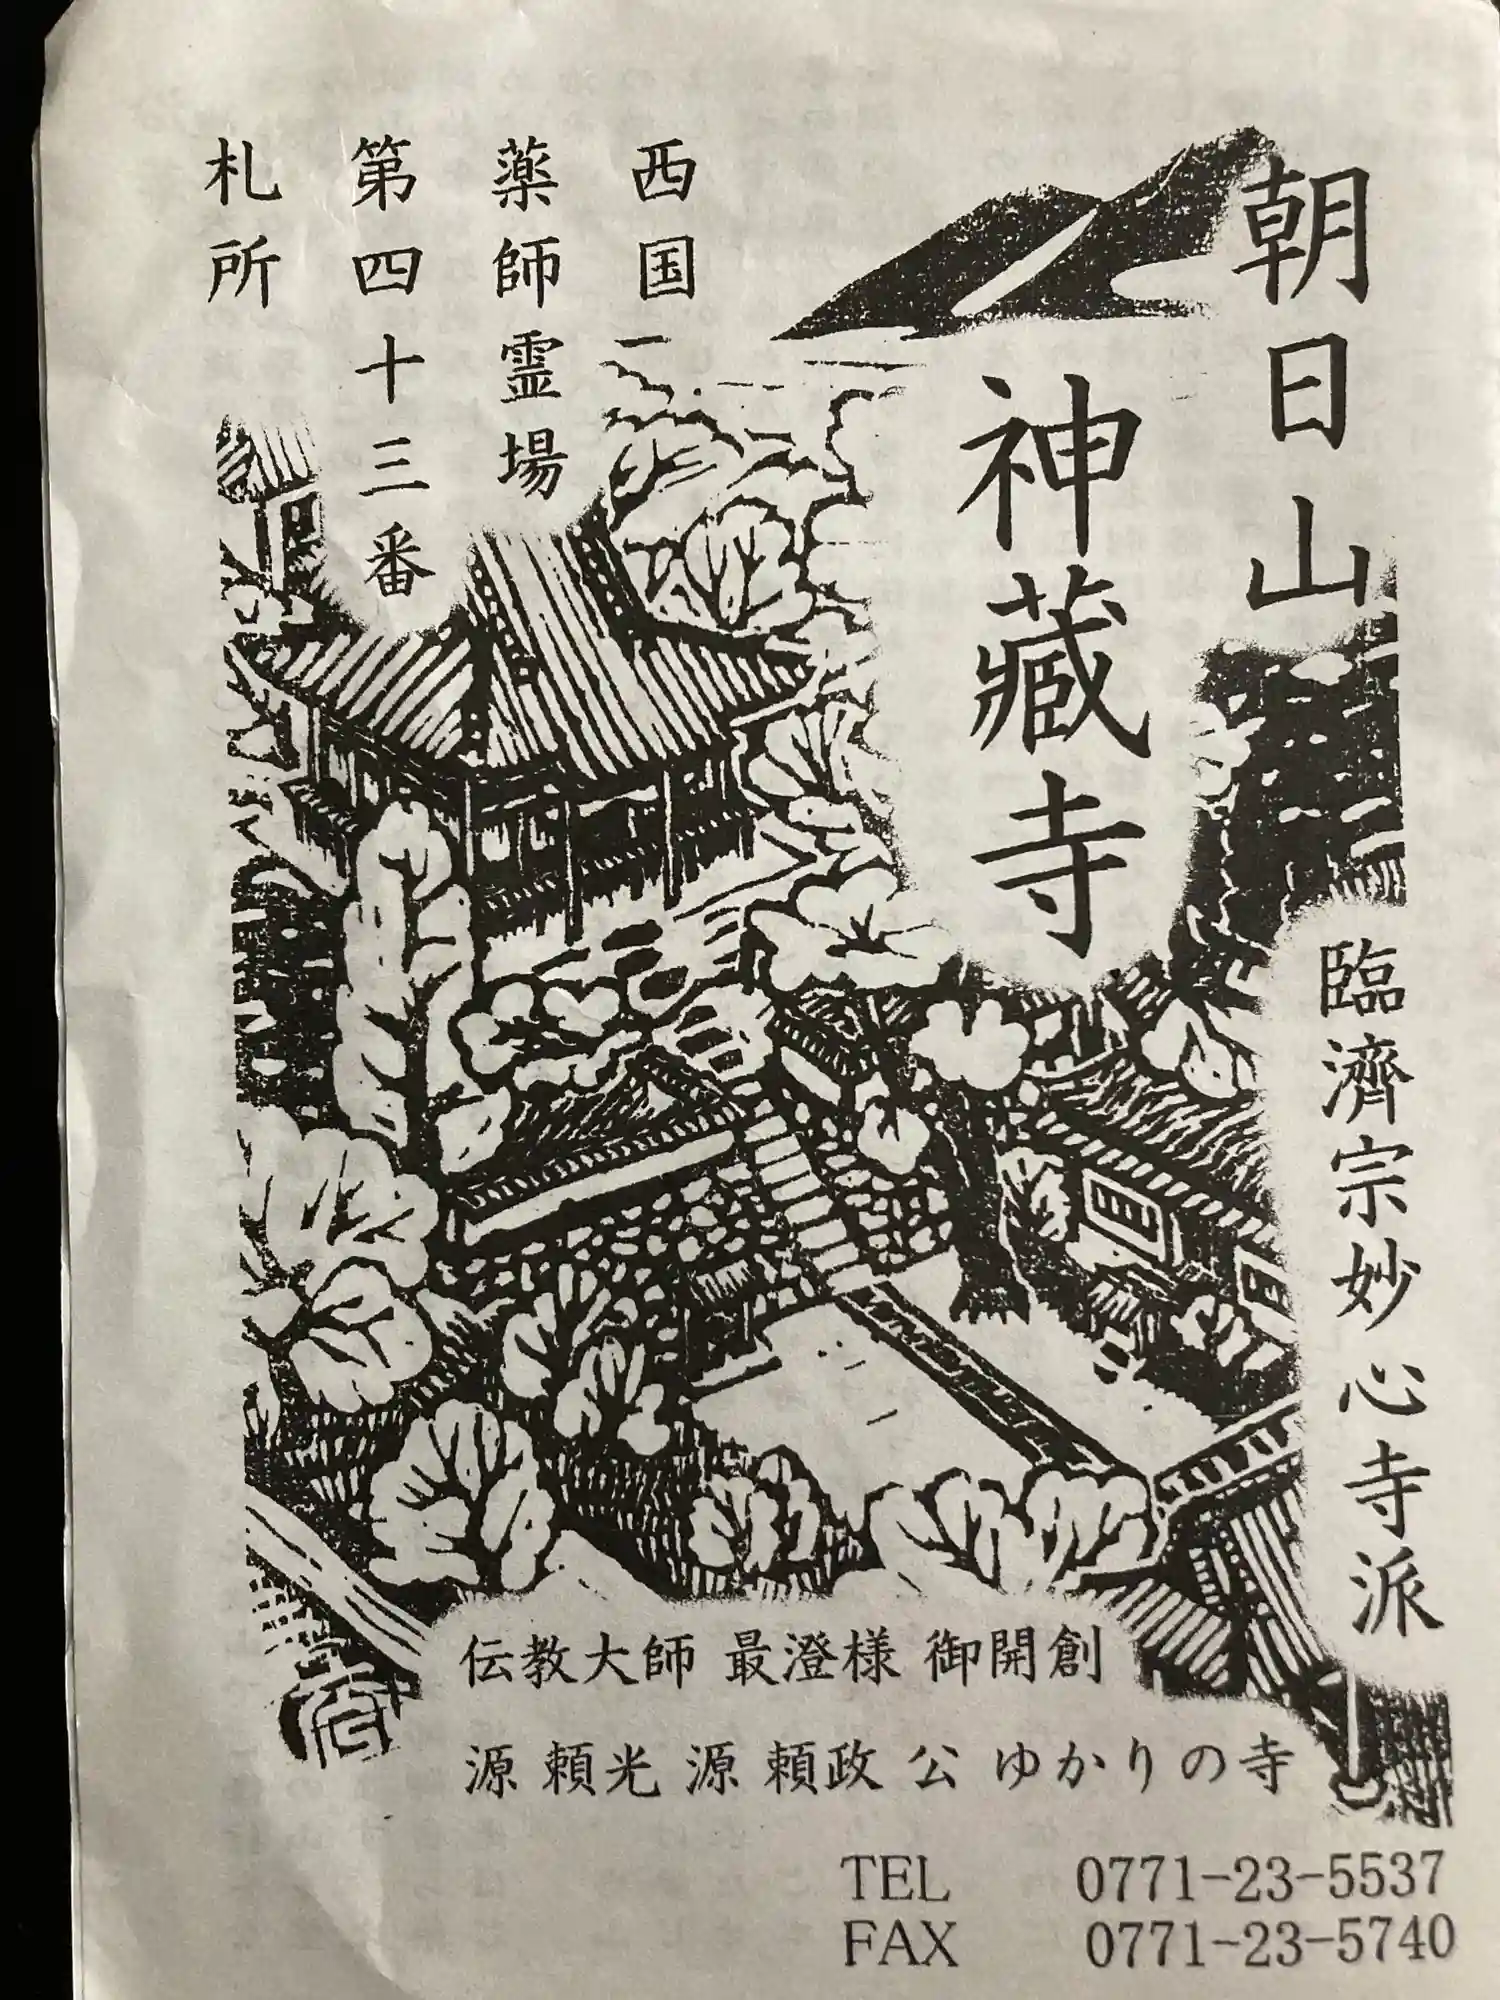 朝日山
神蔵寺
臨濟宗妙心寺派
西国
薬師霊場
第四十三番
札所
伝教大師 最澄様 御開創
源 頼光 源 頼政 公 ゆかりの寺
TEL 0771-23-5537
FAX 0771-23-5740